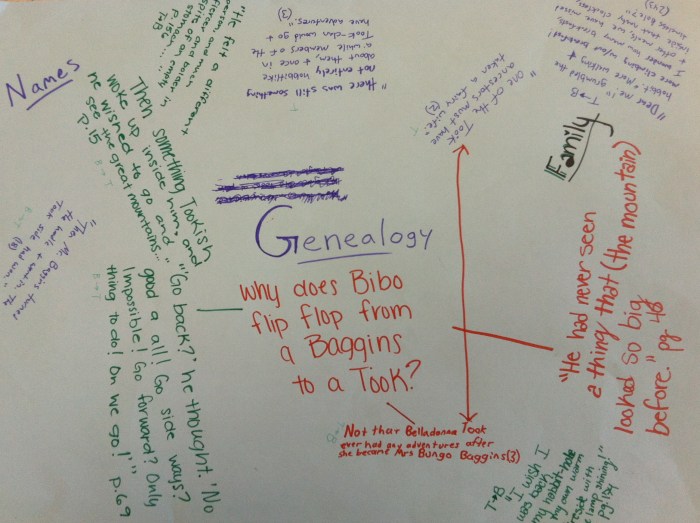 Names
"He felt a different
person, and much
fiercer and bolder in
spite of an empty
stomach..."
p.154
T→B
"there was still something
not entirely hobbitlike
about them, + once in
a while members of the
Took-clan would go +
have adventures."
(3)
"one of the Took
ancestors must have
taken a fairy wife."
(2)
T→B
"Dear me"
Family
Then something Tookish
woke up inside him, and
he wished to go and
see the great mountains...
P.15
B→T
"Then Mr. Baggins turned
the handle + went in. The
Took side had won."
(18)
B→T
Genealogy
Why does Bibo
flip flop from
a Baggins
to a Took?
"'Go back?' he thought. 'No
good a all! Go side ways?
Impossible! Go forward? Only
thing to do! On we go!'"
p.69
B→T
"He had never seen
a thing that (the mountain)
looked so big
before." pg. 48
Not that Belladonna Took
ever had any adventures after
she became Mrs Bungo Baggins(3)
T→B
"I wish I
was back
my hobbit-hole
my own warm
side with
lamp shining!"
pg. 154